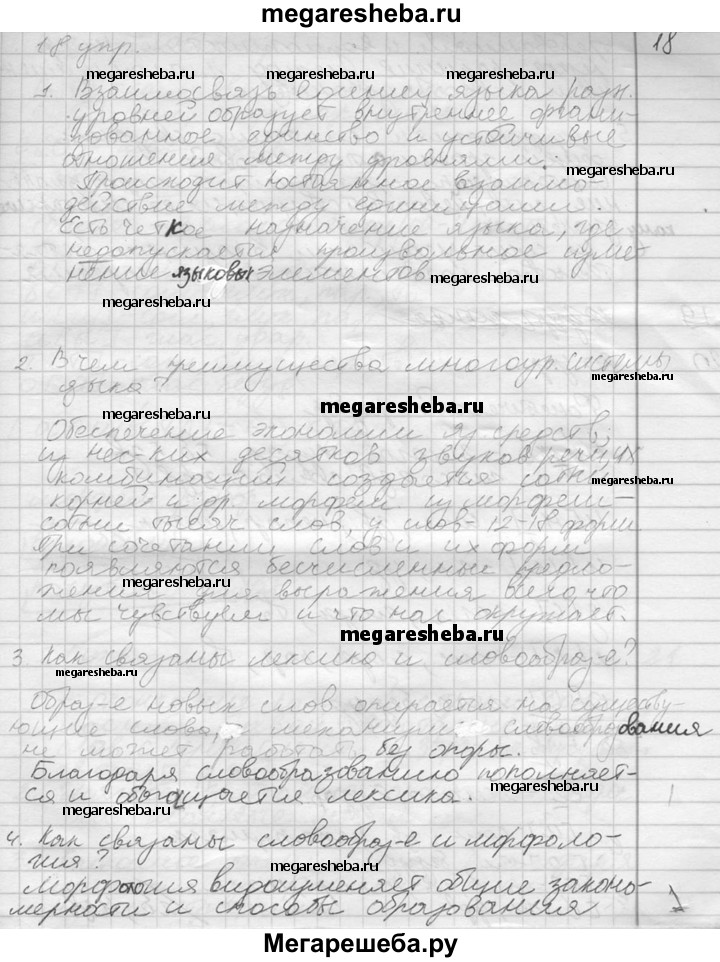 megaresheba.ru
18 упр. 18
megaresheba.ru
1. Взаимосвязь единиц языка разн.
уровней образует внутреннее органи-
зованное единство и устойчивые
отношения между уровнями.
megaresheba.ru
Происходит постоянное взаимо-
действие между единицами.
megaresheba.ru
Есть четкое назначение языка, где
недопускается произвольное изме-
нение языковых элементов
megaresheba.ru
megaresheba.ru
2. В чем преимущества многоур. системы
языка?
megaresheba.ru
megaresheba.ru
megaresheba.ru
Обеспечение экономии яз. средств;
из нес-ких десятков звуков речи их
megaresheba.ru
комбинаций создается сотни
megaresheba.ru
корней и др. морфем из морфем-
сотни тысяч слов, у слов-12-18 форм
При сочетании слов и их форм
появляются бесчисленные предло-
megaresheba.ru
жения для выражения всего, что
мы чувствуем и что нас окружает.
megaresheba.ru
megaresheba.ru
3 Как связаны лексика и словообраз-е?
megaresheba.ru
Образ-е новых слов опирается на существу-
ющие слова, словообразования
не может работать без опоры.
megaresheba.ru
Благодаря словообразованию пополняет-
ся и обогащается лексика.
megaresheba.ru
megaresheba.ru
4. Как связаны словообраз-е и морфоло-
гия?
megaresheba.ru
megaresheba.ru
Морфология видоизменяет общие законо-
мерности и способы образования
megaresheba.ru
Мегарешеба.ру